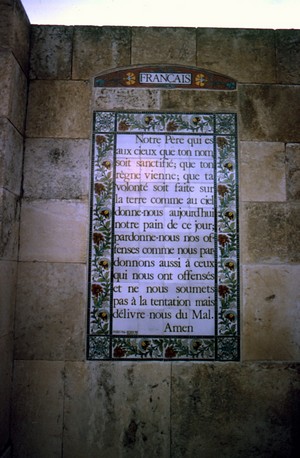 FRANÇAIS
Notre Père qui es
aux cieux que ton nom
soit sanctifié; que ton
règne vienne; que ta
volonté soit faite sur
la terre comme au ciel
donne-nous aujourd'hui
notre pain de ce jour;
pardonne-nous nos of-
fenses comme nous par-
donnons aussi à ceux
qui nous ont offensés
et ne nous soumets
pas à la tentation mais
délivre nous du Mal.
Amen